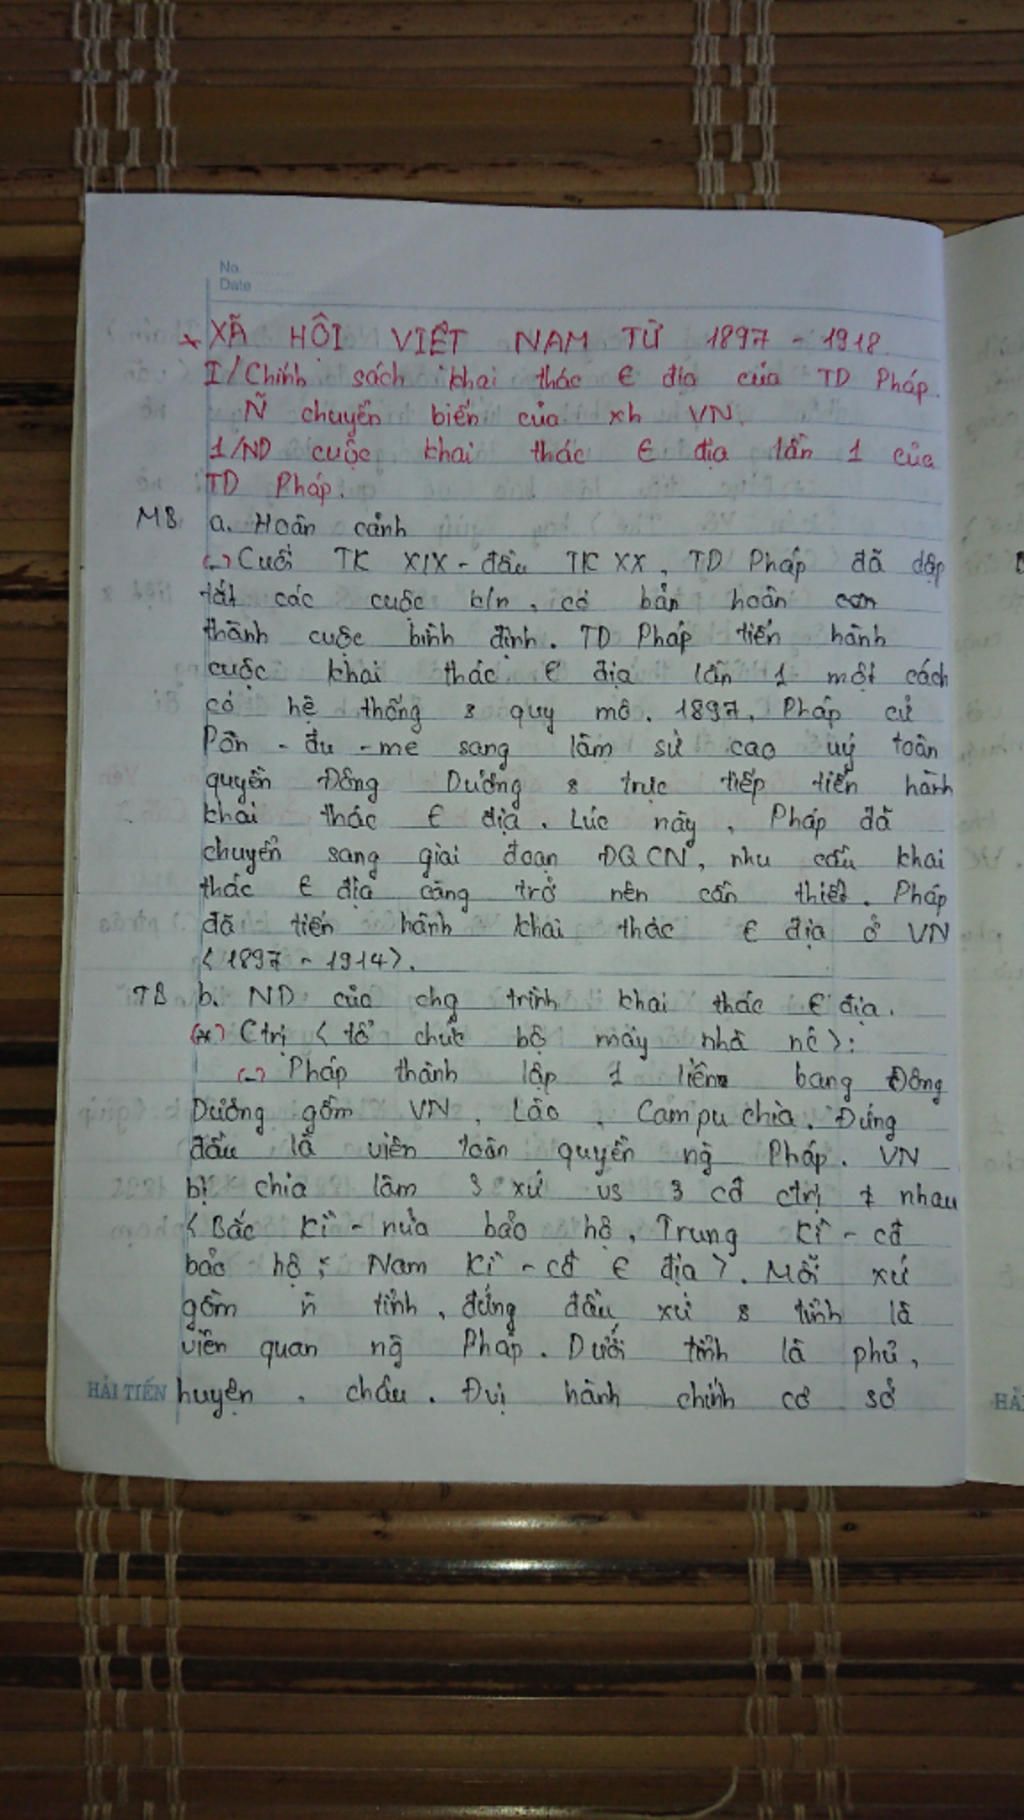 No.
Date
* XÃ HỘI VIỆT NAM TỪ 1897 - 1918.
I/ Chính sách khai thác € địa của TD Pháp.
Ñ chuyển biến của xh VN.
1/ND cuộc khai thác € địa lần 1 của
TD Pháp.
MB a. Hoàn cảnh
(-) Cuối TK XIX - đầu TK XX, TD Pháp đã dập
tắt các cuộc k/n, cơ bản hoàn
thành cuộc bình định. TD Pháp tiến hành
cuộc khai thác € địa lần 1 một cách
có hệ thống & quy mô. 1897, Pháp cử
Pôn - đu - me sang làm sứ cao uỷ toàn
quyền Đông Dương & trực tiếp tiến hành
khai thác € địa. Lúc này, Pháp đã
chuyển sang giai đoạn ĐQCN, nhu cầu khai
thác € địa càng trở nên cần thiết. Pháp
đã tiến hành khai thác € địa ở VN
<1897 - 1914>.
TB b. ND của chg trình khai thác € địa.
(*) Ctrị <tổ chức bộ máy nhà nc>:
(-) Pháp thành lập 1 liên bang Đông
Dương gồm VN, Lào, Campuchia. Đứng
đầu là viên toàn quyền ng Pháp. VN
bị chia làm 3 xứ vs 3 cđ ctrị ≠ nhau
<Bắc Kì - nửa bảo hộ, Trung Kì - cđ
bảo hộ; Nam Kì - cđ € địa>. Mỗi xứ
gồm ñ tỉnh, đứng đầu xứ & tỉnh là
viên quan ng Pháp. Dưới tỉnh là phủ,
huyện, châu. Đvị hành chính cơ sở
HẢI TIẾN